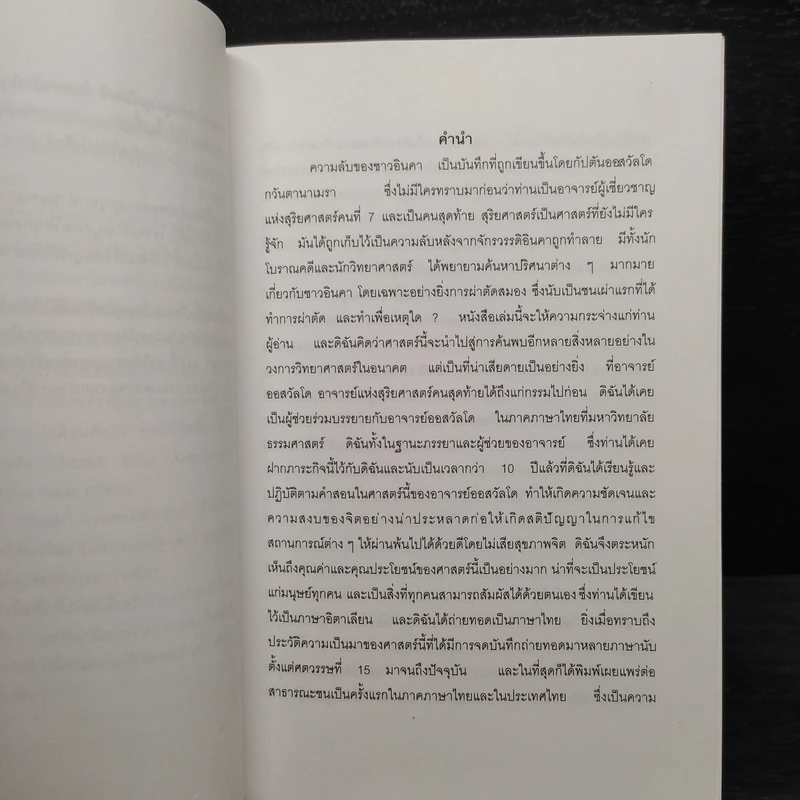 คำนำ
ความลับของชาวอินคา เป็นบันทึกที่ถูกเขียนขึ้นโดยกัปตันออสวัลโด
กวันตานาเมรา ซึ่งไม่มีใครทราบมาก่อนว่าท่านเป็นอาจารย์ผู้เชี่ยวชาญ
แห่งสุริยศาสตร์คนที่ 7 และเป็นคนสุดท้าย สุริยศาสตร์เป็นศาสตร์ที่ยังไม่มีใคร
รู้จัก มันได้ถูกเก็บไว้เป็นความลับหลังจากจักรวรรดิอินคาถูกทำลาย มีทั้งนัก
โบราณคดีและนักวิทยาศาสตร์ ได้พยายามค้นหาปริศนาต่าง ๆ มากมาย
เกี่ยวกับชาวอินคา โดยเฉพาะอย่างยิ่งการผ่าตัดสมอง ซึ่งนับเป็นชนเผ่าแรกที่ได้
ทำการผ่าตัด และทำเพื่อเหตุใด ? หนังสือเล่มนี้จะให้ความกระจ่างแก่ท่าน
ผู้อ่าน และดิฉันคิดว่าศาสตร์นี้จะนำไปสู่การค้นพบอีกหลายสิ่งหลายอย่างใน
วงการวิทยาศาสตร์ในอนาคต แต่เป็นที่น่าเสียดายเป็นอย่างยิ่ง ที่อาจารย์
ออสวัลโด อาจารย์แห่งสุริยศาสตร์คนสุดท้ายได้ถึงแก่กรรมไปก่อน ดิฉันได้เคย
เป็นผู้ช่วยร่วมบรรยายกับอาจารย์ออสวัลโด ในภาคภาษาไทยที่มหาวิทยาลัย
ธรรมศาสตร์ ดิฉันทั้งในฐานะภรรยาและผู้ช่วยของอาจารย์ ซึ่งท่านได้เคย
ฝากภาระกิจนี้ไว้กับดิฉันและนับเป็นเวลากว่า 10 ปีแล้วที่ดิฉันได้เรียนรู้และ
ปฏิบัติตามคำสอนในศาสตร์นี้ของอาจารย์ออสวัลโด ทำให้เกิดความชัดเจนและ
ความสงบของจิตอย่างน่าประหลาดก่อให้เกิดสติปัญญาในการแก้ไข
สถานการณ์ต่าง ๆ ให้ผ่านพ้นไปได้ด้วยดีโดยไม่เสียสุขภาพจิต ดิฉันจึงตระหนัก
เห็นถึงคุณค่าและคุณประโยชน์ของศาสตร์นี้เป็นอย่างมาก น่าที่จะเป็นประโยชน์
แก่มนุษย์ทุกคน และเป็นสิ่งที่ทุกคนสามารถสัมผัสได้ด้วยตนเอง ซึ่งท่านได้เขียน
ไว้เป็นภาษาอิตาเลียน และดิฉันได้ถ่ายทอดเป็นภาษาไทย ยิ่งเมื่อทราบถึง
ประวัติความเป็นมาของศาสตร์นี้ที่ได้มีการจดบันทึกถ่ายทอดมาหลายภาษานับ
ตั้งแต่ศตวรรษที่ 15 มาจนถึงปัจจุบัน และในที่สุดก็ได้พิมพ์เผยแพร่ต่อ
สาธารณะชนเป็นครั้งแรกในภาคภาษาไทยและในประเทศไทย ซึ่งเป็นความ